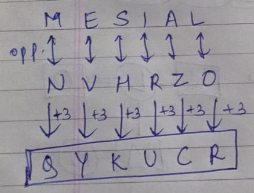 M E S I A L
opp.
N V H R Z O
+3 +3 +3 +3 +3 +3
Q Y K U C R